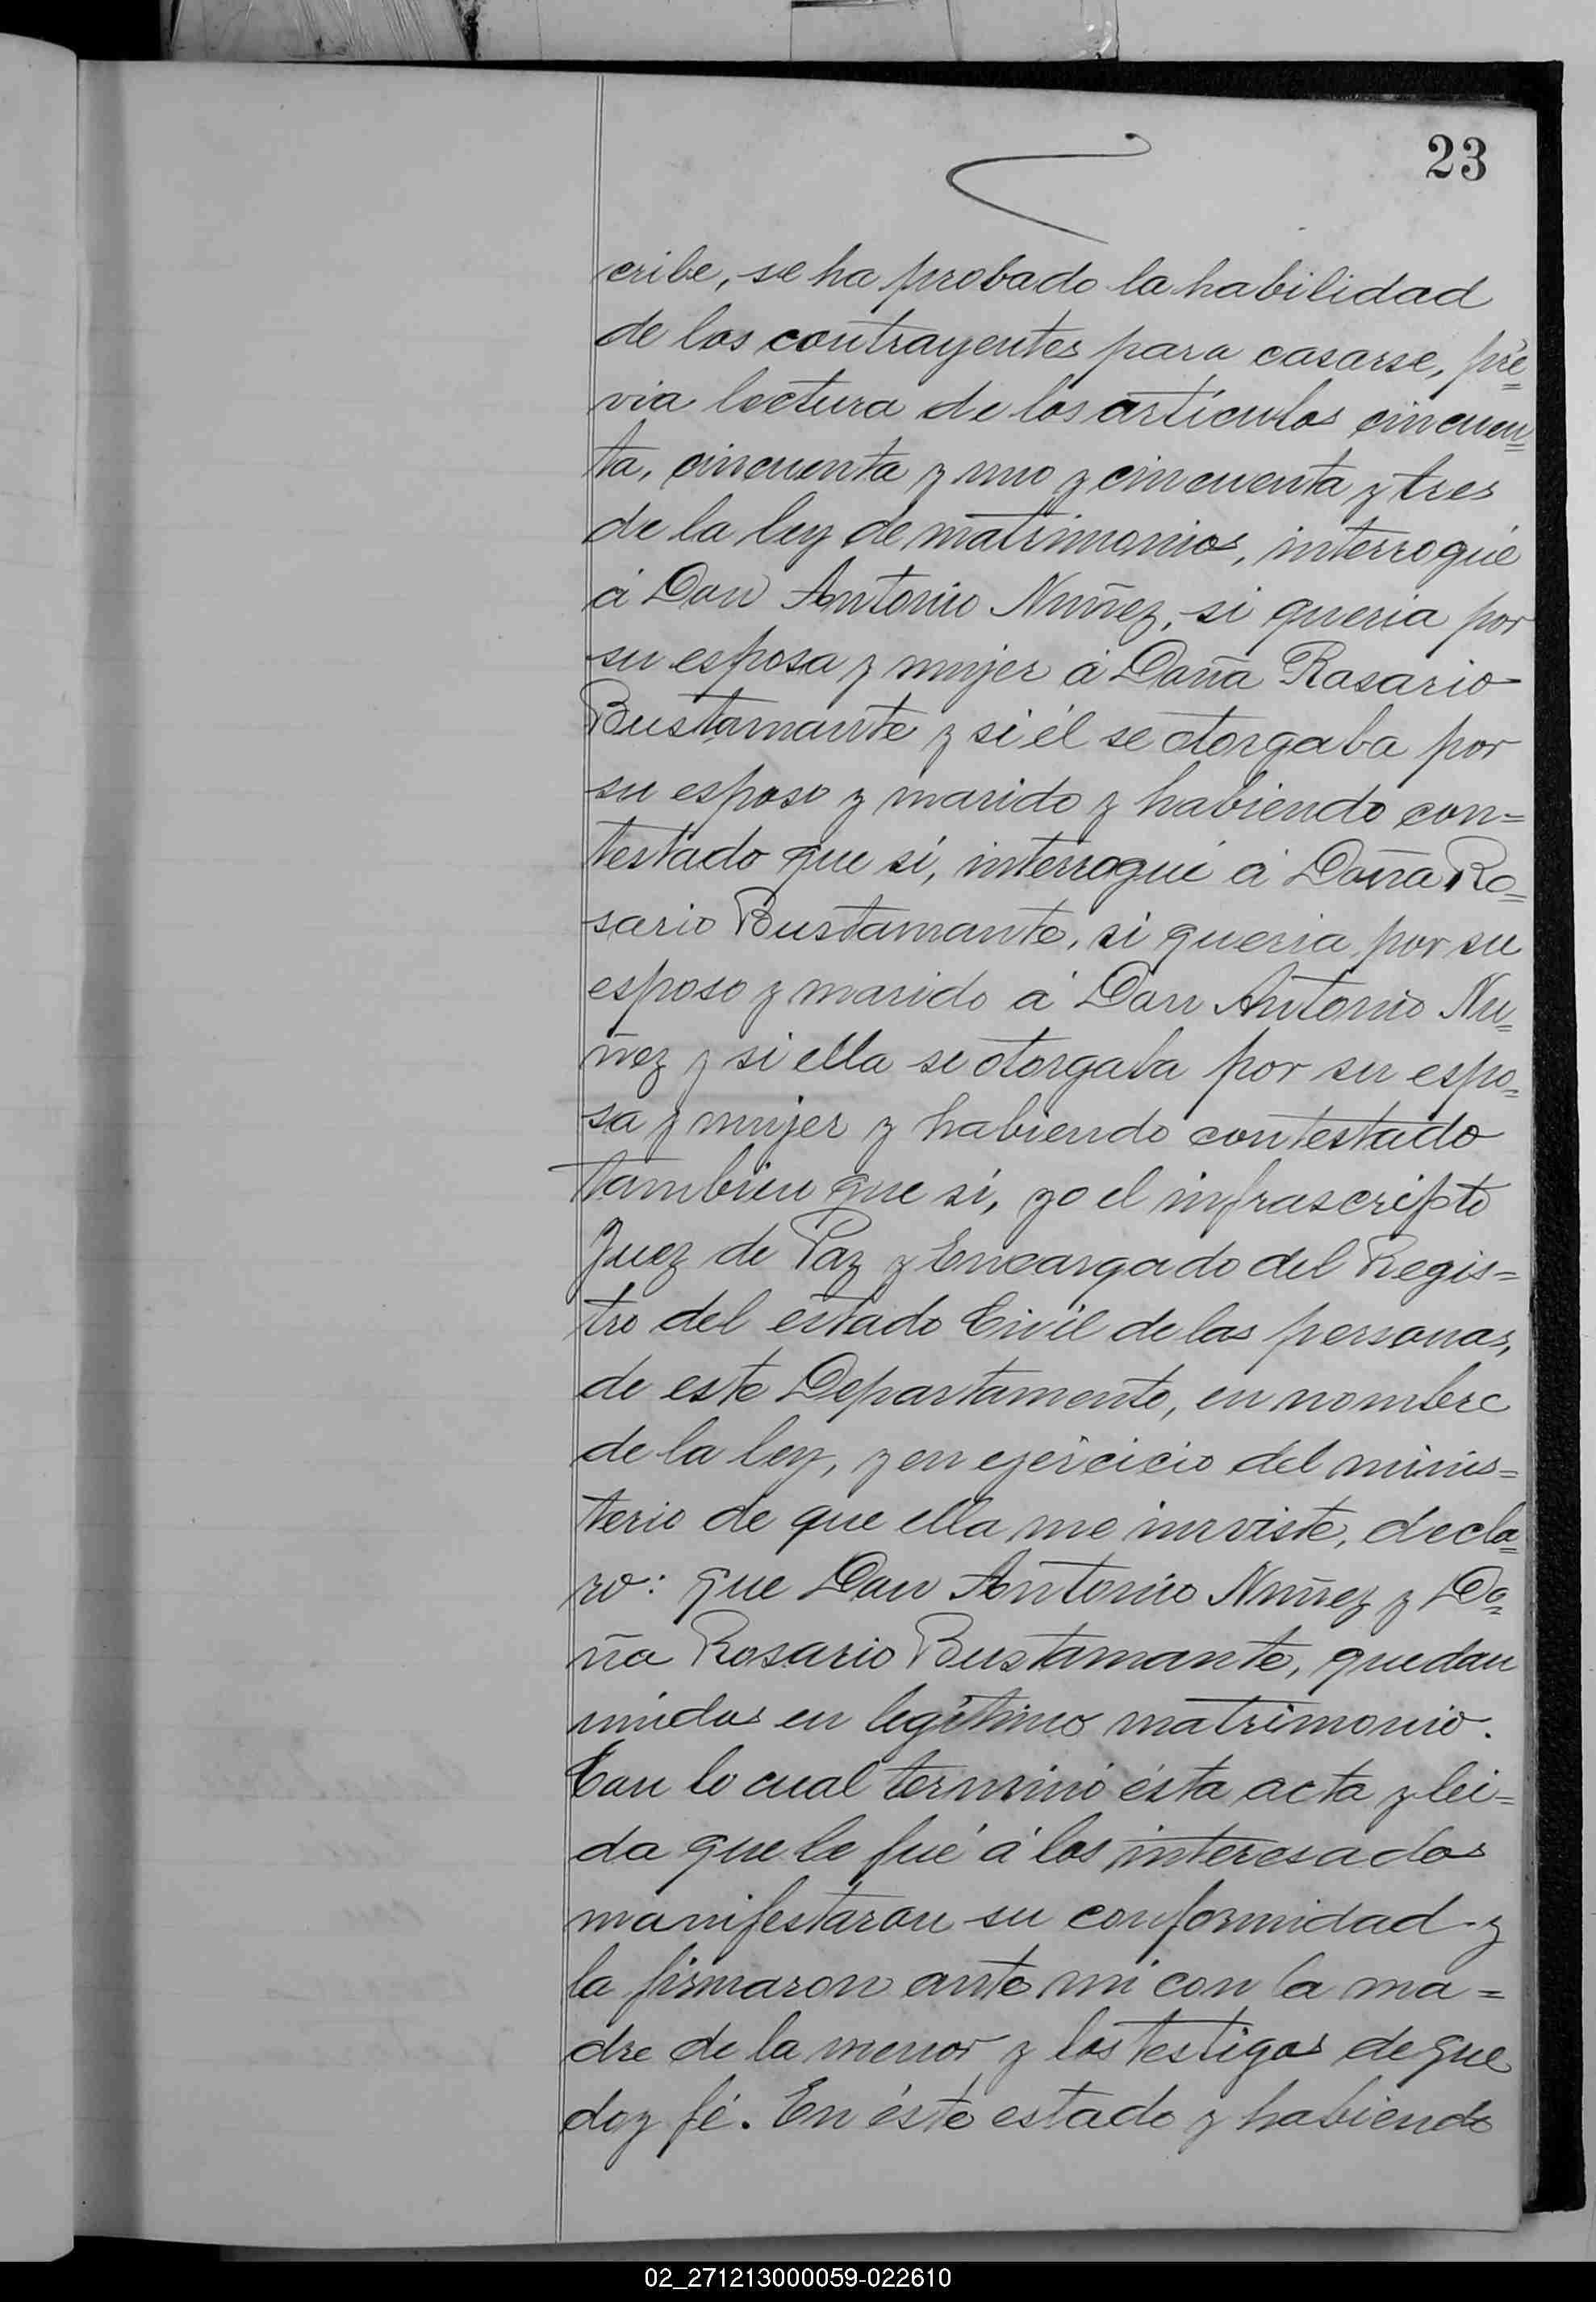 23
cribe, se ha probado la habilidad
de los contrayentes para casarse, pre=
via lectura de los artículos cincuen=
ta, cincuenta y uno y cincuenta y tres
de la ley de matrimonios, interrogué
á Don Antonio Nuñez, si queria por
su esposa y mujer á Doña Rosario
Bustamante y si él se otorgaba por
su esposo y marido y habiendo con=
testado que sí, interrogué á Doña Ro=
sario Bustamante, si queria por su
esposo y marido á Don Antonio Nu=
ñez y si ella se otorgaba por su espo=
sa y mujer y habiendo contestado
tambien que sí, yo el infrascripto
Juez de Paz y Encargado del Regis=
tro del estado Civil de las personas,
de este Departamento, en nombre
de la ley, y en ejercicio del minis=
terio de que ella me inviste, decla=
ro: que Don Antonio Nuñez y Do=
ña Rosario Bustamante, quedan
unidos en legítimo matrimonio.
Con lo cual terminó ésta acta y lei=
da que le fué á los interesados
manifestaron su conformidad y
la firmaron ante mi con la ma=
dre de la menor y los testigos de que
doy fé. En éste estado y habiendo
02_271213000059-022610